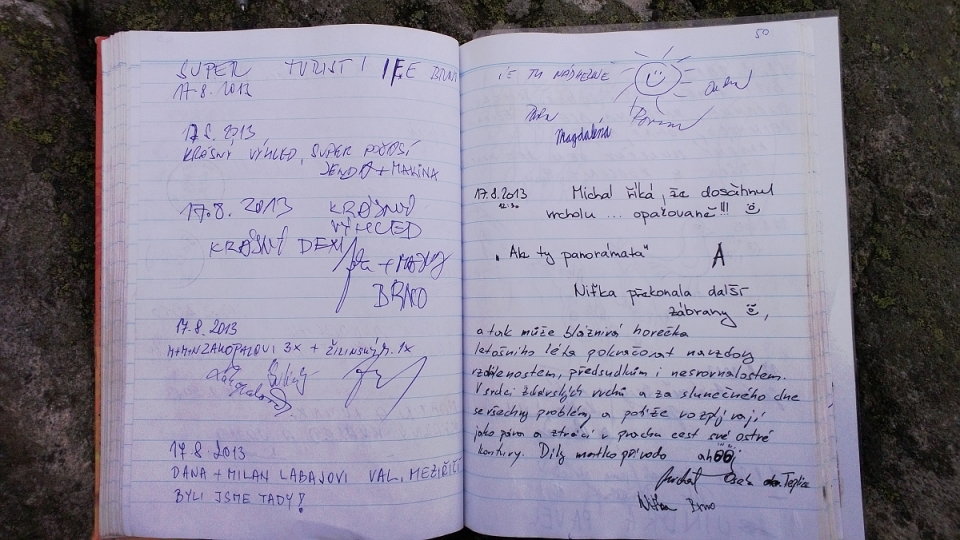 SUPER TURISTI BRNO
17.8.2013
17.8.2013
KRÁSNÝ VÝHLED, SUPER POČASÍ
JENDA + MALINA
17.8.2013 KRÁSNÝ
VÝHLED
KRÁSNÝ DEN
BRNO
17.8.2013
3x + ŽILINSKÝ 1x
17.8.2013
DANA + MILAN LABAJOVI VAL. MEZIŘÍČÍ
BYLI JSME TADY!
50
JE TU NÁDHERNĚ
Magdaléna
17.8.2013
12:30
Michal říká, že dosáhnul
vrcholu ... opažovaně!!!
„Ak ty panorámata"
A
Niťka překonala další
zábrany
a tak může bláznivá horečka
letošního léta pokračovat navzdory
vzdálenostem, předsudkům i nesrovnalostem.
V srdci žďárských vrchů a za slunečného dne
se všechny problémy a potíže rozplývají
jako pára a ztrácí v prachu cest své ostré
kontury. Díky matko přírodo ahój
Michal
Niťka Brno